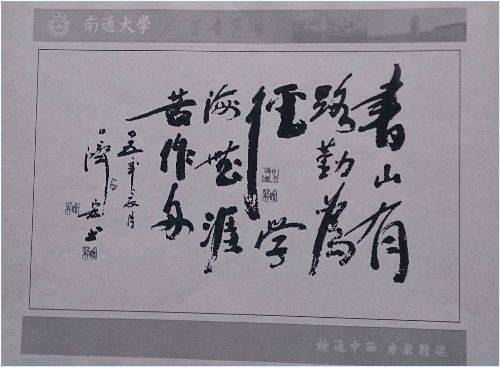 南通大學
書山有
路勤為
徑学
海無涯
苦作舟
祈通中西 力求精進